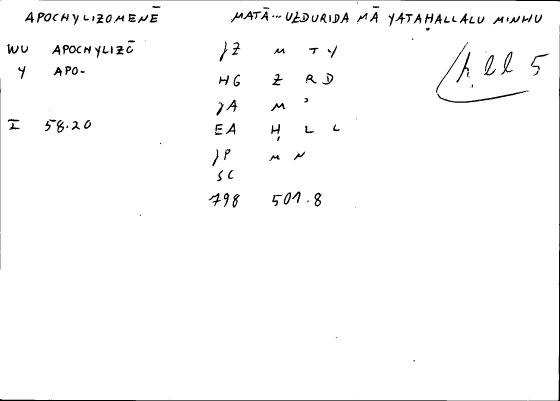 APOCHYLIZOMENĒ MATĀ... UZDURIDA MĀ YATAḤALLALU MINHU
WU APOCHYLIZŌ JZ M T Y
Y APO- HG Z R D
JA M ʾ
I 58.20 EA Ḥ L L
JP M N
SC
798 501.8
ḥll 5